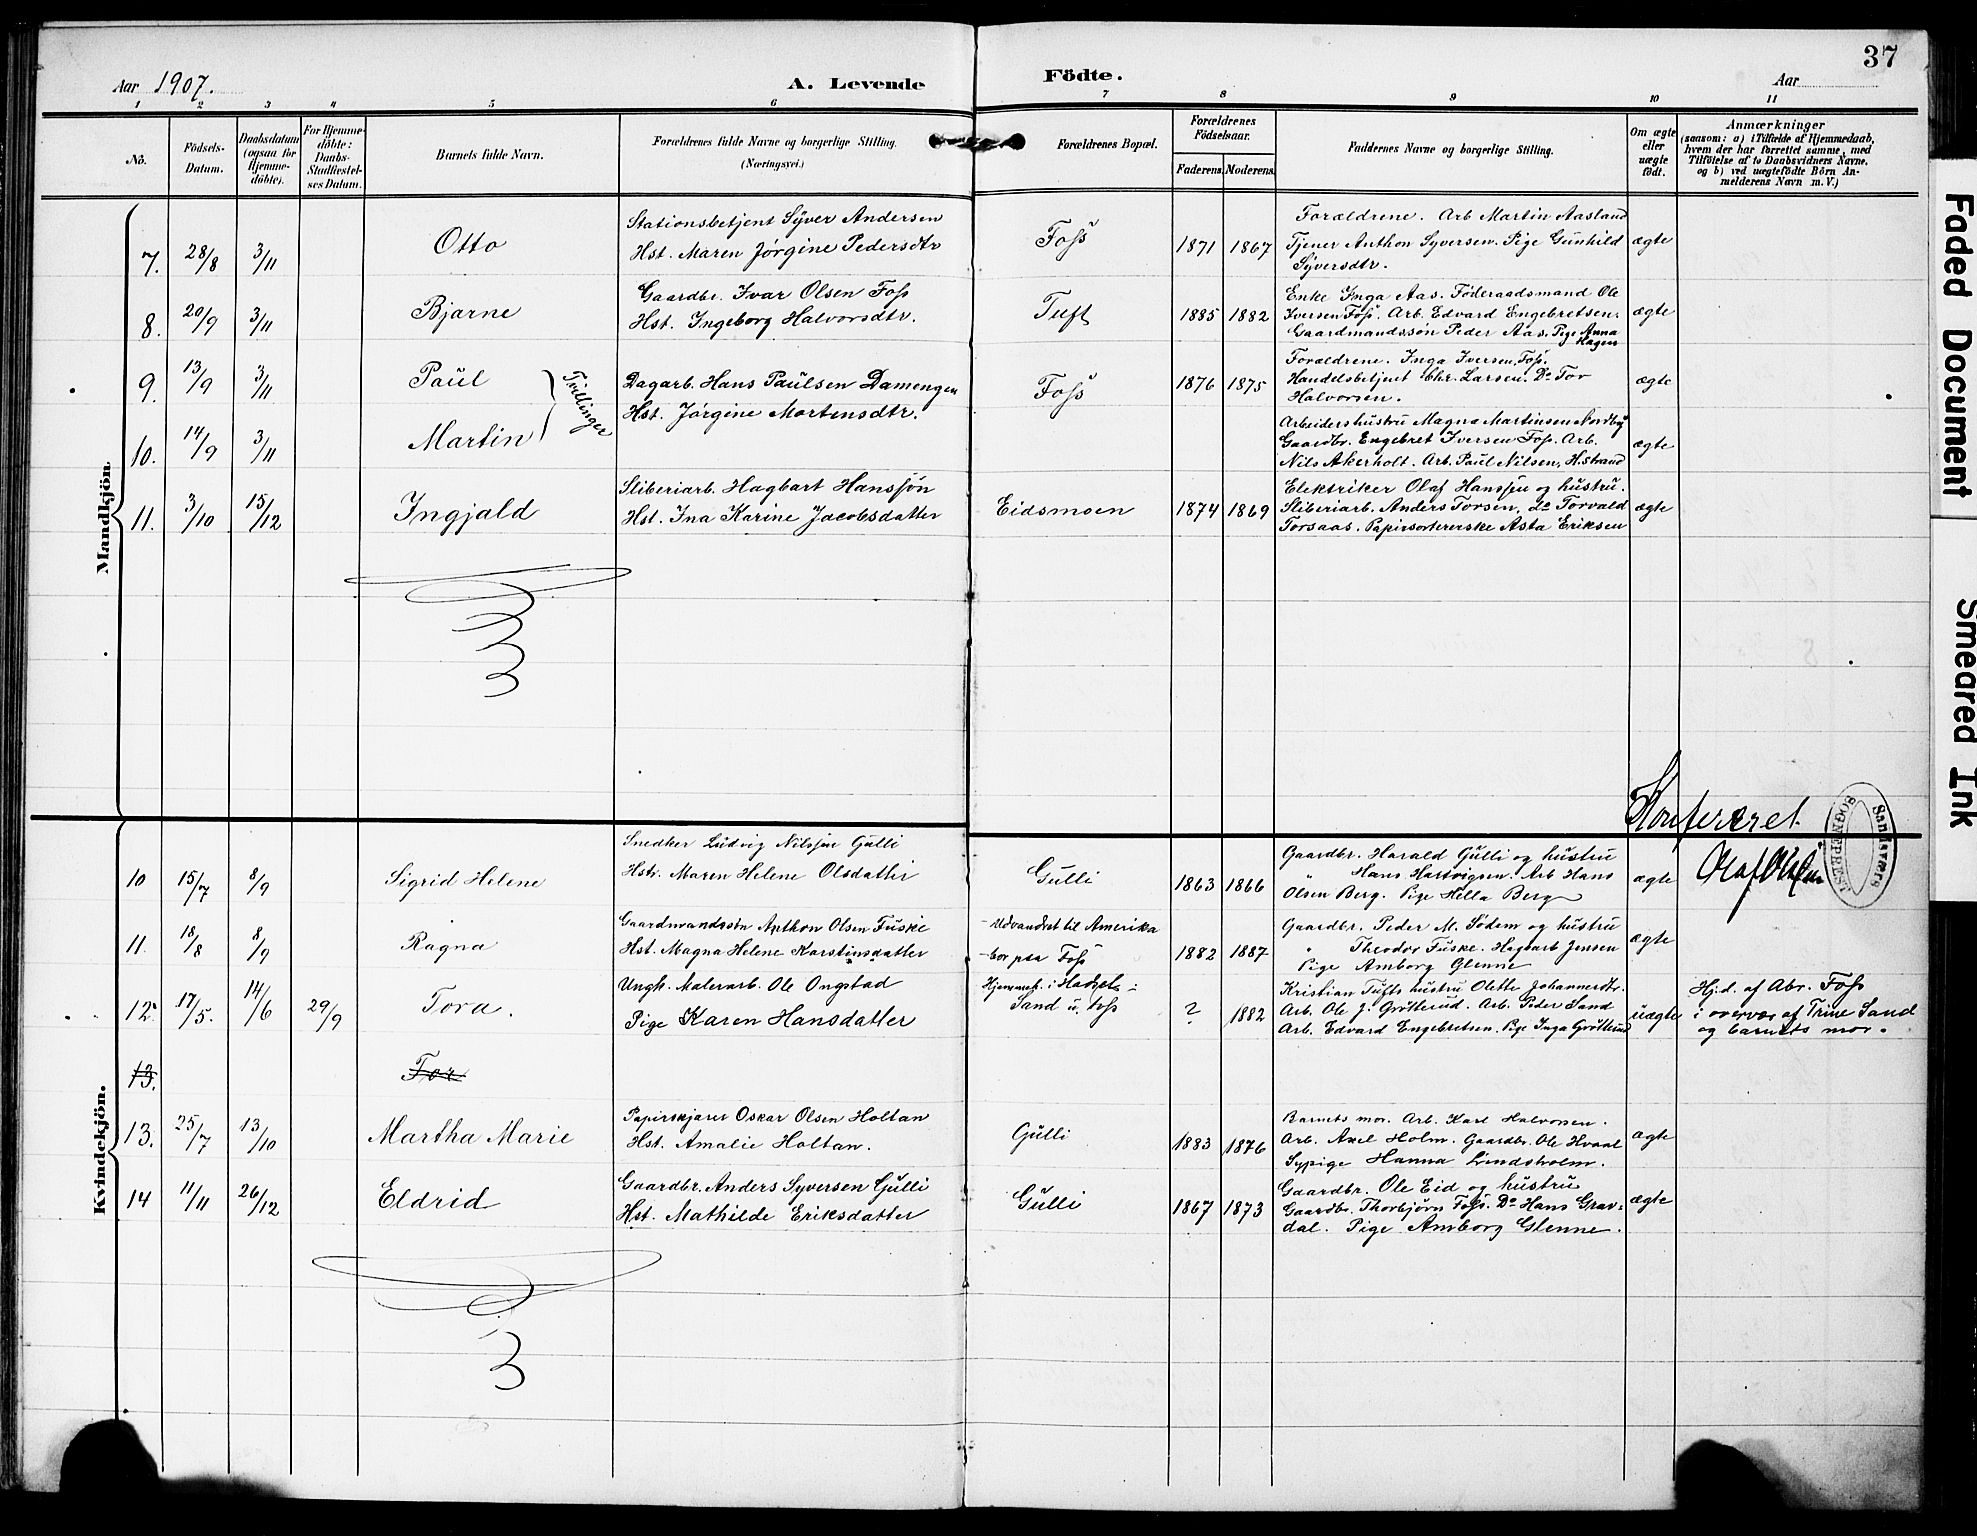 37
Aar 1907.
A. Levende Födte.
Aar
1 2 3 4 5 6 7 8 9 10 11
No.
Födsels-
Datum.
Daabsdatum
(ogsaa for
Hjemme-
döbte).
For Hjemme-
döbte:
Daabs-
Stadfæstel-
ses Datum.
Barnets fulde Navn.
Forældrenes fulde Navne og borgerlige Stilling.
(Næringsvei.)
Forældrenes Bopæl.
Forældrenes
Födselsaar.
Faderens. Moderens.
Faddernes Navne og borgerlige Stilling.
Om ægte
eller
uægte
födt.
Anmærkninger
(saasom: a) i Tilfælde af Hjemmedaab,
hvem der har forrettet samme, med
Tilföielse af to Daabsvidners Navne.
og b) ved uægtefödte Börn An-
melderens Navn m. V.)
Mandkjön.
7. 28/8 3/11 Otto
Stationsbetjent Syver Andersen
Hst. Maren Jørgine Pedersdtr
Foss 1871 1867
Forældrene. Arb Martin Aasland
Tjener Anthon Syversen. Pige Gunhild
Syversdtr.
ægte
8. 20/9 3/11 Bjarne
Gaardbr. Ivar Olsen Foss
Hst. Ingeborg Halvorsdtr.
Tuft 1885 1882
Enke Inga Aas. Föderaadsmand Ole
Iversen Foss. Arb. Edvard Engebretsen.
Gaardmandssøn Peder Aas. Pige Anna
Hagen
ægte
9. 13/9 3/11 Paul
Tvillinger
Dagarb. Hans Paulsen Damengen
Hst. Jørgine Mortensdtr.
Foss 1876 1875
Forældrene. Inga Iversen, Foss.
Handelsbetjent Chr. Larsen. Do Tor
Halvorsen.
ægte
10. 14/9 3/11 Martin
Arbeidershustru Magna Martinsen Nordby
Gaardbr. Engebret Iversen Foss. Arb.
Nils Akerholt. Arb. Paul Nilsen, H.strand
ægte
11. 3/10 15/12 Ingjald
Sliberiarb. Hagbart Hanssøn
Hst. Ina Karine Jacobsdatter
Eidsmoen 1874 1869
Elektriker Olaf Hanssen og hustru.
Sliberiarb. Anders Torsen, do Torvald
Torsaas. Papirsortererske Asta Eriksen
ægte
Konfereret.
Olaf Olsen
Sandsværs
SOGNEPREST
Kvindekjön.
10 15/7 8/9 Sigrid Helene
Snedker Ludvig Nilssen Gulli
Hstr. Maren Helene Olsdatter
Gulli 1863 1866
Gaardbr. Harald Gulli og hustru
" Hans Hartvigsen. Arb Hans
Olsen Berg. Pige Hella Berg
ægte
11. 18/8 8/9 Ragna
Gaardmandssøn Anthon Olsen Fuske
Hst. Magna Helene Karstinsdatter
Udvandret til Amerika
bor paa Foss
1882 1887
Gaardbr. Peder M. Sødem og hustru
" Theodor Fuske. Hagbart Jensen
Pige Amborg Glenne
ægte
12. 17/5. 14/6 29/9 Tora.
Ungk. Malerarb. Ole Ongstad
Pige Karen Hansdatter
Sand u. Foss
? 1882
Kristian Tufts hustru Olette Johannesdtr.
Arb. Ole J. Grötterud. Arb. Peder Sand
Arb. Edvard Engebretsen. Pige Inga Grötterud
uægte
Hj.d. af Abr. Foss
i overvær af Trine Sand
og barnets mor.
13. Tor
13. 25/7 13/10 Martha Marie
Papirskjærer Oskar Olsen Holtan
Hst. Amalie Holtan.
Gulli 1883 1876
Barnets mor. Arb. Karl Halvorsen.
Arb. Axel Holm. Gaardbr. Ole Hvaal
Sypige Hanna Lindsholm.
ægte
14 11/11 26/12 Eldrid
Gaardbr. Anders Syversen Gulli
Hst. Mathilde Eriksdatter
Gulli 1867 1873
Gaardbr. Ole Eid og hustru
Gaardbr. Thorbjørn Foss. Do Hans Grav-
dal. Pige Amborg Glenne.
ægte
Faded Document
Smeared Ink